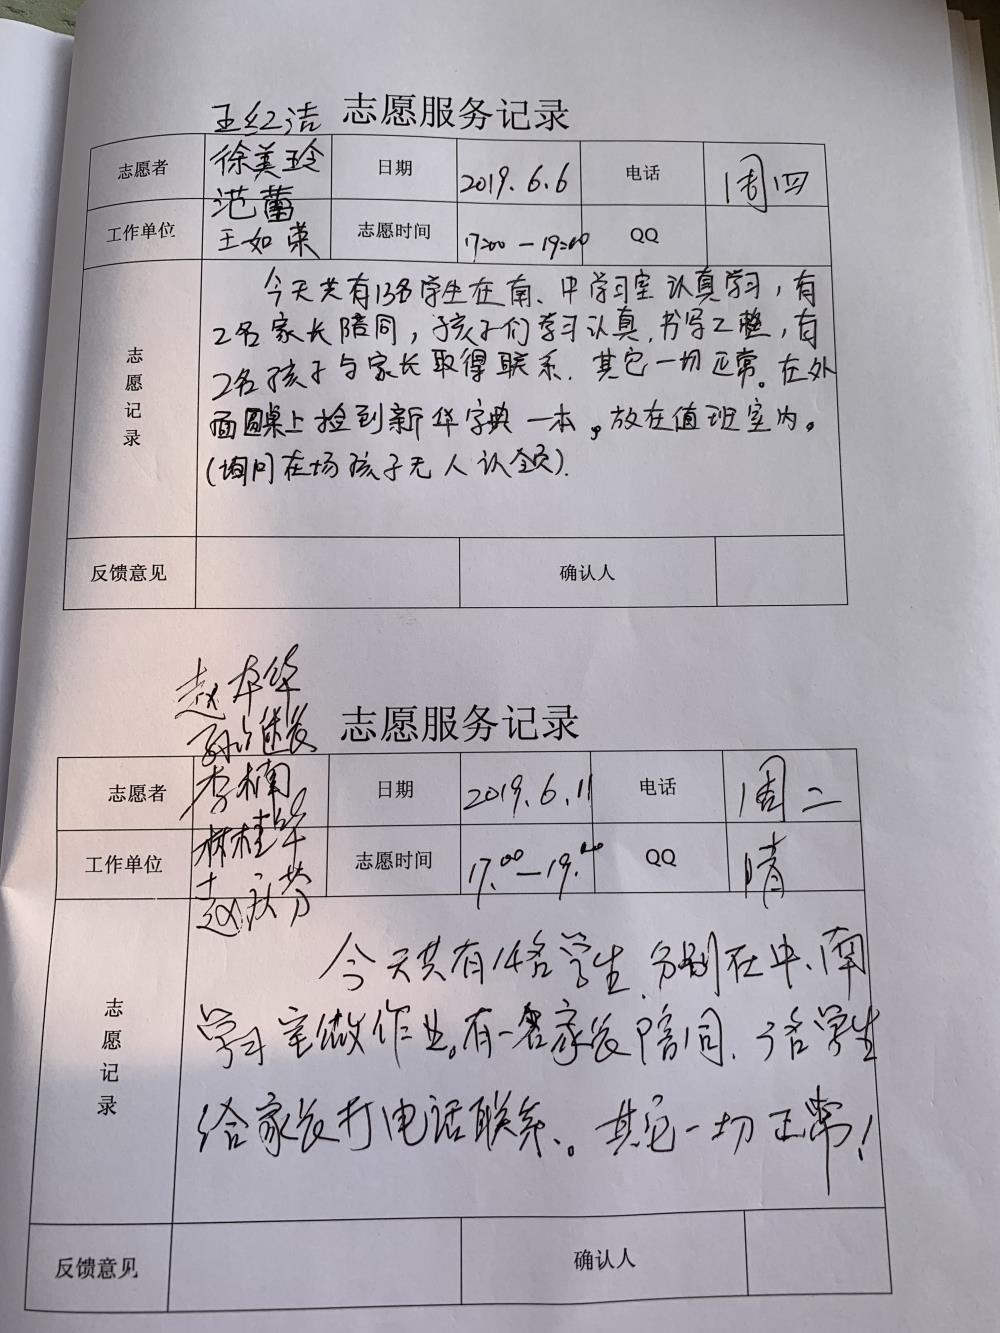 王红洁 志愿服务记录
志愿者 徐美玲 日期 2019.6.6 电话 周四
范蕾
工作单位 王如荣 志愿时间 17:00—19:00 QQ
今天共有13名学生在南、中学习室认真学习，有
2名家长陪同，孩子们学习认真，书写工整，有
2名孩子与家长取得联系，其它一切正常。在外
面圆桌上捡到新华字典一本，放在值班室内。
(询问在场孩子无人认领).
志愿记录
反馈意见 确认人
赵本华
志愿服务记录
志愿者 李楠 日期 2019.6.11 电话 周二
林桂华
工作单位 志愿时间 17:00—19:00 QQ 晴
今天共有14名学生,分别在中、南
学习室做作业。有一名家长陪同、3名学生
给家长打电话联系。其它一切正常!
志愿记录
反馈意见 确认人